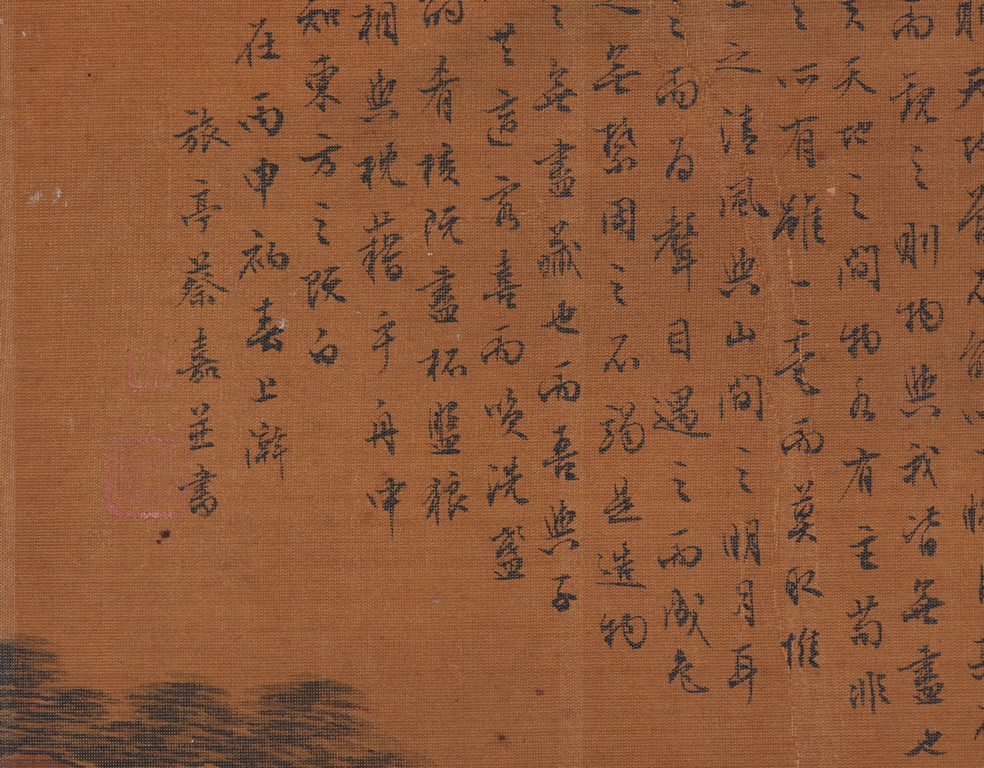 則天地曾不能以一瞬自其不
而觀之則物與我皆無盡也
夫天地之間物各有主苟非
之所有雖一毫而莫取惟
上之清風與山間之明月耳
之而為聲目遇之而成色
之無禁用之不竭是造物
之無盡藏也而吾與子
共適客喜而笑洗盞
酌肴核既盡杯盤狼
相與枕藉乎舟中
知東方之既白
在丙申初春上澣
旅亭蔡嘉並書